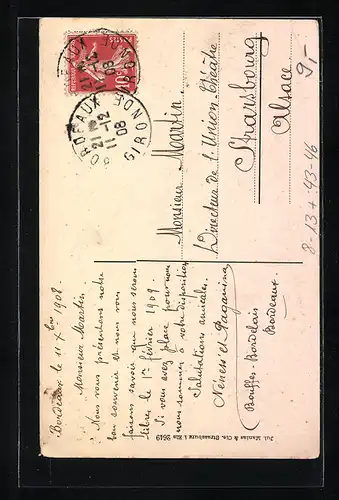 Bordeaux le 11 Xbre 1908.
Monsieur Martin
Nous vous présentons notre
bon souvenir et nous vous
faisons savoir que nous serons
libres le 1er février 1909.
Si vous avez place pour nous
nous sommes à votre disposition
Salutations amicales.
Neness et Paganina
Bouffes-Bordelais
Bordeaux.
Monsieur Martin.
Directeur de l'Union-Théâtre
Strassbourg
Alsace.
BORDEAUX
21
11-12
08
GIRONDE
10c
9,-
8-13+:43-46
Jul. Manias & Cie. Strassburg i. Els 2649